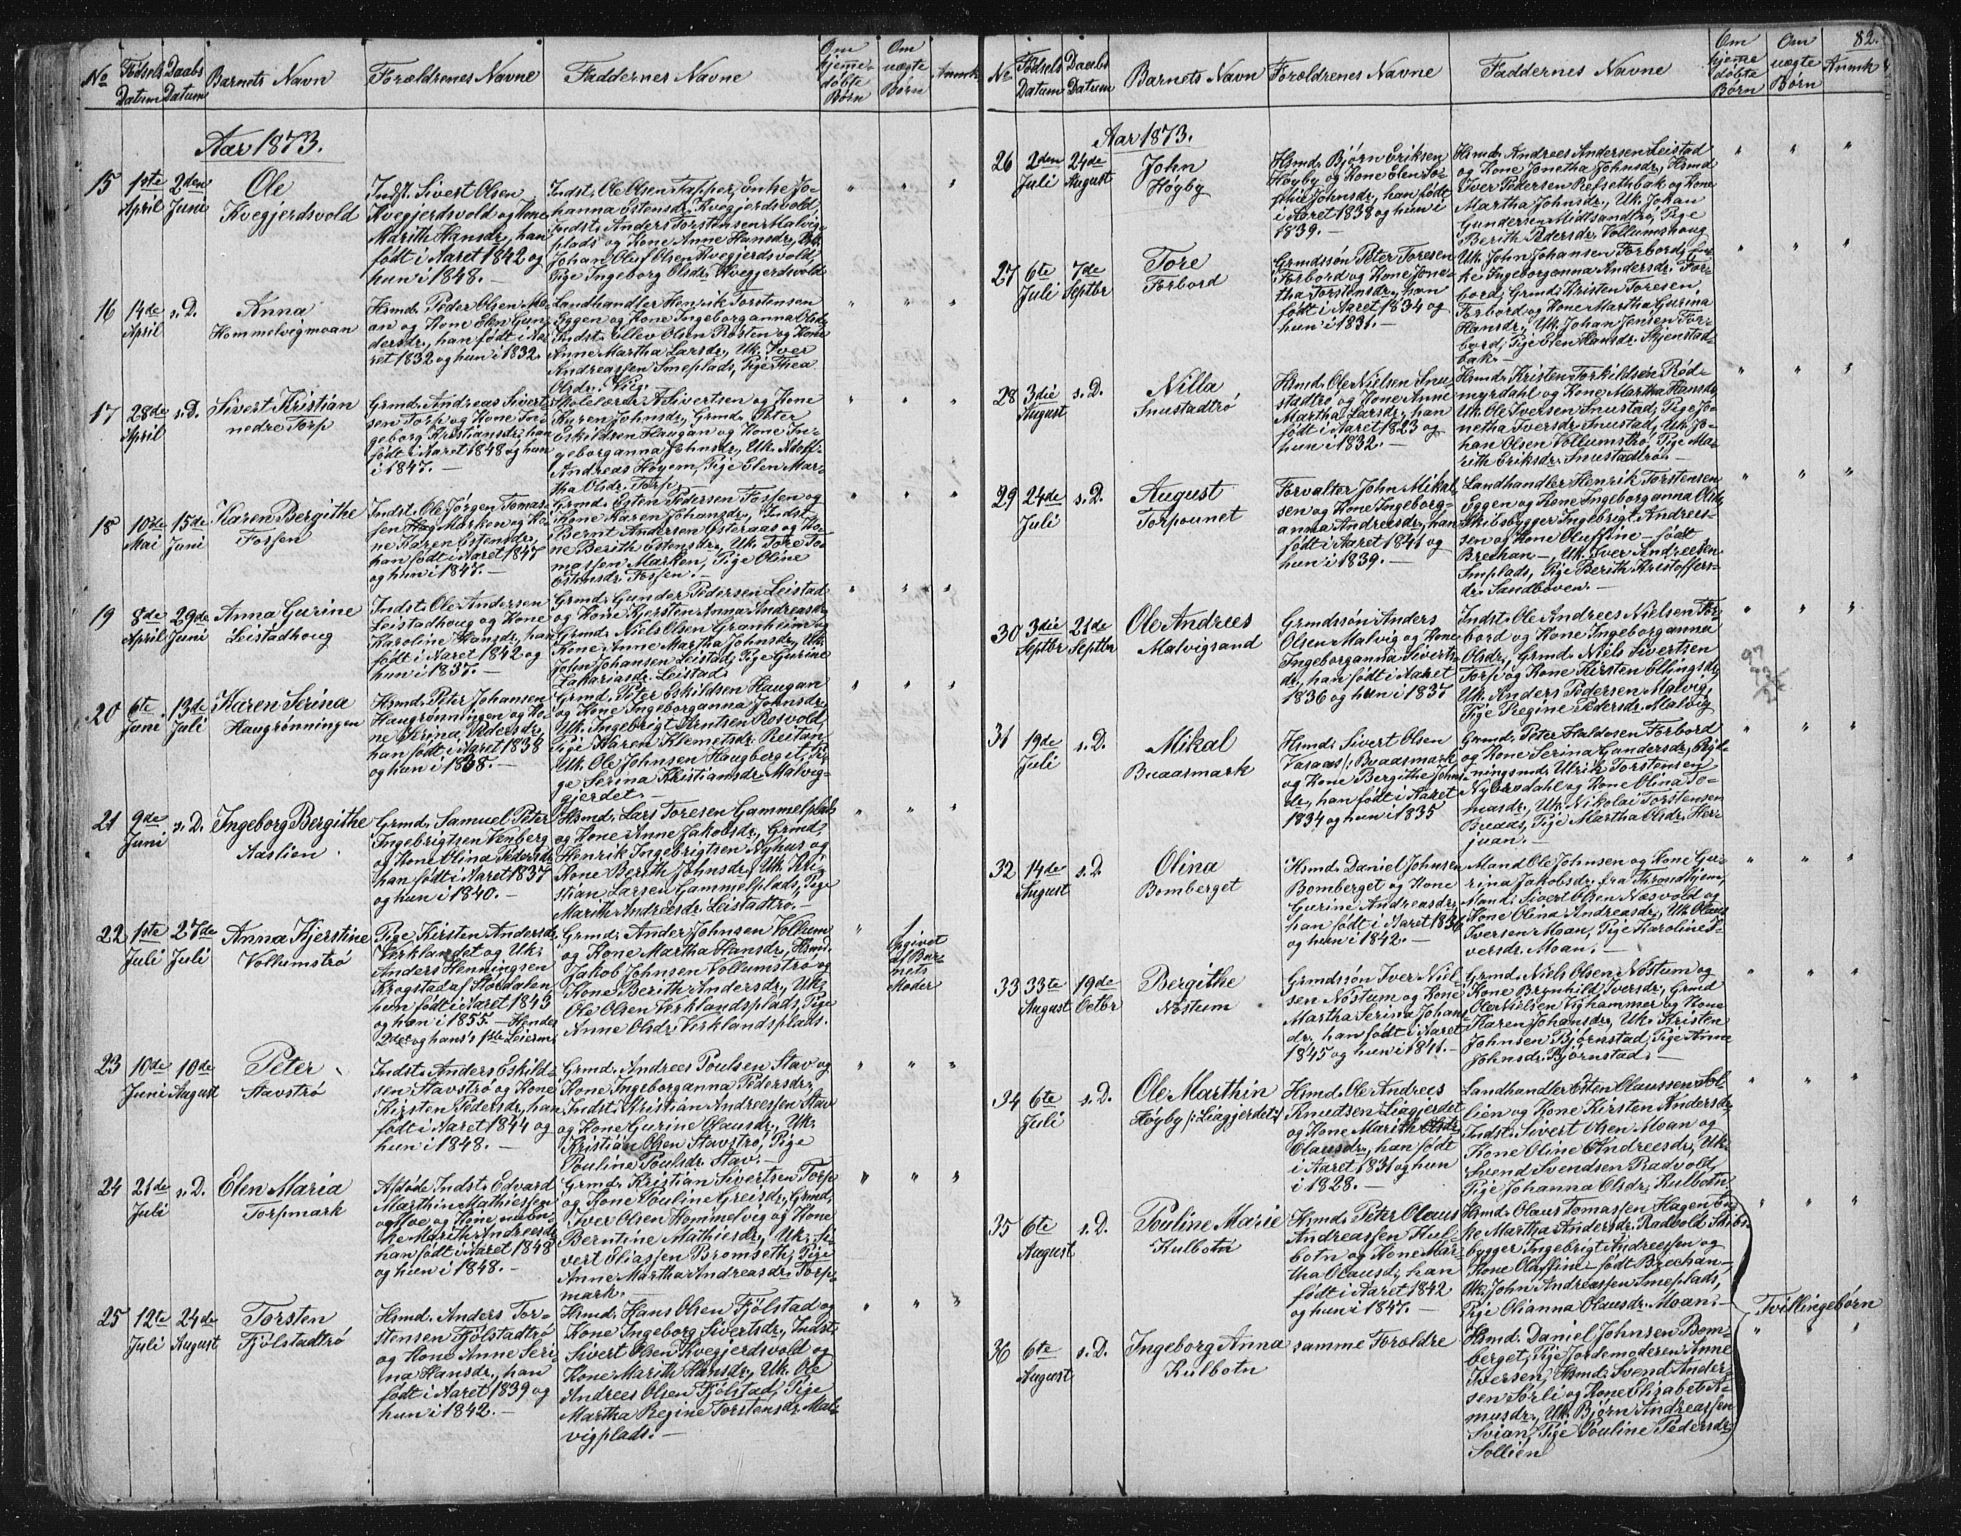 No
Fødsels Datum
Daabs Datum
Barnets Navn
Forældrenes Navne
Faddernes Navne
Om hjemedøbte Børn
Om uægte Børn
Anmk
Aar 1873.
15
1ste April
2den Juni
Ole
Kvegjerdsvold
Indst. Sivert Olsen
Kvegjerdsvold og Kone
Marith Hansdr, han
født i Aaret 1842 og
hun i 1848.
Indst. Ole Olsen Tapper, Enke Jo-
hanna Estensdr. Kvegjerdsvold,
Indst. Anders Torstensen Malvig-
plads og Kone Anne Hansdr, Uk.
Johan Oluf Olsen Kvegjerdsvold,
Pige Ingeborg Olsdr. Kvegjerdsvold
16
14de April
s. D.
Anna
Hommelvigmoan
Hsmd. Peder Olsen Mo-
an og Kone Elen Gun-
dersdr, han født i Aa-
ret 1832 og hun i 1832.
Landhandler Henrik Torstensen
Eggen og Kone Ingeborganna Olsdr
Indst. Ellev Olsen Rosten og Kone
Anne Martha Larsdr, Uk. Iver
Andreassen Smeplads, Pige Thea
Olsdr.
17
28de April
s. D.
Sivert Kristian
nedre Torp
Grmd. Andreas Sivert-
sen Torp og Kone In-
geborg Kristiansdr, han
født i Aaret 1848 og hun
i 1847. —
Skolelærer A. Sivertsen og Kone
Guren Johnsdr, Grmd. Peter
Eskildsen Haugan og Kone In-
geborganna Johnsdr, Uk. Adolf
Andreas Høyem, Pige Elen Mar-
tha Olsdr. Torp
18
10de Mai
15de Juni
Karen Bergithe
Fossen
Indst. Ole Jørgen Tomas-
sen Marken og Ko-
ne Karen Estensdr,
han født i Aaret 1847
og hun i 1847. —
Grmd. Esten Pedersen Fossen og
Kone Karen Johansdr, Indst
Bernt Andersen Østeraas og Ko-
ne Berith Estensdr, Uk. Tore To-
massen Marken, Pige Oline
Estensdr. Fossen. —
19
8de April
29de Juni
Anna Gurine
Leistadhoug
Indst. Ole Andersen
Leistadhoug og Kone
Karoline Hansdr, han
født i Aaret 1842 og
hun i 1837.
Grmd. Gunder Pedersen Leistad
og Kone Kjersten Anna Andreasdr
Grmd. Niels Olsen Granheim og
Kone Anne Martha Johnsdr, Uk.
John Johansen Leistad, Pige Gurine
Zakariasdr. Leistad
20
6te Juni
13de Juli
Karen Serina
Haugrønningen
Hsmd. Peter Johansen
Haugrønningen og Ko-
ne Serina Pedersdr,
han født i Aaret 1838
og hun i 1838. —
Grmd. Peter Eskildsen Haugan
og Kone Ingeborganna Johnsdr,
Uk. Ingebrigt Arntsen Rosvold,
Pige Karen Klemetsdr. Reitan,
Uk. Ole Johnsen Haugberget, Pi-
ge Serina Kristiansdr. Malvig-
gjerdet. —
21
9de Juni
s. D.
Ingeborg Bergithe
Aaslien
Grmd. Samuel Peter
Ingebrigtsen Venberg
og Kone Olina Pedersdr
han født i Aaret 1837
og hun i 1840. —
Hsmd. Lars Toresen Gammelplads
og Kone Anne Jakobsdr, Grmd.
Henrik Ingebrigtsen Nyhus og
Kone Berith Johnsdr, Uk. Kri-
stian Larsen Gammelplads, Pige
Marith Andreasdr. Leistadtrø. —
22
1ste Juli
27de Juli
Anna Kjerstine
Vollumstrø
Pige Kirsten Andersdr
Virklandet og Uk.
Anders Henningsen
Krogstad af Stordalen
hun født i Aaret 1843
og han i 1855. — Hendes
2det og hans 1ste Leierm.
Grmd. Ander Johnsen Vollum
og Kone Martha Hansdr, Hsmd.
Jakob Johnsen Vollumstrø og
Kone Berith Andersdr, Uk.
Ole Olsen Virklandsplads, Pige
Anne Olsdr. Virklandsplads.
Opgivet
af Bar-
nets
Moder
23
10de Juni
10de August
Peter
Stavstrø
Indst. Anders Eskild-
sen Stavstrø og Kone
Kirsten Pedersdr, han
født i Aaret 1844 og
hun i 1848. —
Grmd. Andrees Poulsen Stav og
Kone Ingeborganna Pedersdr,
Indst. Kristian Andreassen Stav
og Kone Gurine Olausdr, Uk.
Kristian Olsen Stavstrø, Pige
Pouline Poulsdr. Stav. —
24
21de Juli
s. D.
Elen Maria
Torpmark
Afdøde Indst. Edvard
Marthin Mathiessen
og Kone
Marith Andreasdr
han født i Aaret 1848
og hun i 1848. —
Grmd. Kristian Sivertsen Torp
og Kone Pouline Greisdr, Grmd.
Iver Olsen Hommelvig og Kone
Berntine Mathiesdr, Uk. Si-
vert Eliassen Bromseth, Pige
Anne Martha Andreasdr. Torp-
mark. —
25
12te Juli
24de August
Torsten
Fjølstadtrø
Hsmd. Anders Tor-
stensen Fjølstadtrø
og Kone Anne Seri-
na Hansdr, han
født i Aaret 1839 og
hun i 1842. —
Hsmd. Hans Olsen Fjølstad og
Kone Ingeborg Sivertsdr, Indst.
Sivert Olsen Kvegjerdsvold og
Kone Marith Hansdr, Uk. Ole
Andrees Olsen Fjølstad, Pige
Martha Regine Torstensdr. Mal-
vigplads. —
82.
No
Fødsels Datum
Daabs Datum
Barnets Navn
Forældrenes Navne
Faddernes Navne
Om hjemedøbte Børn
Om uægte Børn
Anmk
Aar 1873.
26
2den Juli
24de August
John
Høyby
Hsmd. Bjørn Eriksen
Høyby og Kone Elen So-
fie Johnsdr, han født
i Aaret 1838 og hun i
1839. —
Hsmd. Andreas Andersen Leistad
og Kone Jonetha Johnsdr, Hsmd
Iver Pedersen Refsethbak og Kone
Martha Johnsdr, Uk. Johan
Gundersen Midtsandtrø, Pige
Berith Pedersdr. Vollumshoug
27
6te Juli
7de Septbr
Tore
Forbord
Grmdssøn Peter Toresen
Forbord og Kone Jone-
tha Torstensdr, han
født i Aaret 1834 og
hun i 1831. —
Uk. John Johansen Forbord, En-
ke Ingeborganna Andersdr. For-
bord, Grmd. Kristen Toresen,
Forbord og Kone Martha Gurina
Hansdr, Uk. Johan Jensen For-
bord, Pige Elen Hansdr. Skjenstad-
bak. —
28
3die August
s. D.
Nilla
Snustadtrø
Hsmd. Ole Nielsen Snu-
stadtrø og Kone Anne
Martha Larsdr, han
født i Aaret 1823 og
hun i 1832. —
Hsmd. Kristen Torkildsen Røde
myrdahl og Kone Martha Hansdr
Uk. Ole Iversen Snustad, Pige Jo-
netha Iversdr. Snustad, Uk. Jo-
han Olsen Vollumstrø, Pige Ma-
rith Eriksdr. Snustadtrø. —
29
24de Juli
s. D.
August
Torpounet
Forvalter John Mikal-
sen og Kone Ingeborg-
anna Andreasdr, han
født i Aaret 1841 og
hun i 1839. —
Landhandler Henrik Torstensen
Eggen og Kone Ingeborganna Olsdr
Skibsbygger Ingebrigt Andreas-
sen og Kone Oluffine — født
Brechan —, Uk. Iver Andreesen
Smplads, Pige Berith Kristoffers-
dr. Sandboven. —
30
3die Septbr
21de Septbr
Ole Andrees
Malvigsand
Grmdssøn Anders
Olsen Malvig og Kone
Ingeborganna Siverts-
dr, han født i Aaret
1836 og hun i 1837
Indst. Ole Andrees Nielsen For-
bord og Kone Ingeborganna
Olsdr, Grmd. Niels Sivertsen
Torp og Kone Kirsten Ellingsdr
Uk. Anders Pedersen Malvig,
Pige Regine Pedersdr. Malvig
31
19de Juli
s. D.
Mikal
Buaasmark
Hsmd. Sivert Olsen
Buaasmark
og Kone Bergithe Johns-
dr, han født i Aaret
1834 og hun i 1835
Grmd. Peter Haldosen Forbord
og Kone Serina Gundersdr, Byg-
ningsmd. Ulrik Torstensen
Nybrodahl og Kone Olina To-
masdr, Uk. Nikolai Torstensen
Buaas, Pige Martha Olsdr. Her-
juan. —
32
14de August
s. D.
Olina
Bomberget
Hsmd. Daniel Johnsen
Bomberget og Kone
Gurine Andreasdr,
han født i Aaret 1836
og hun i 1842. —
Mand Ole Johnsen og Kone Gu-
rina Jakobsdr. fra Throndhjem,
Mand Sivert Olsen Næsvold og
Kone Olina Andreasdr, Uk. Olaus
Iversen Moan, Pige Karoline I-
versdr. Moan. —
33
33te August
19de Octbr
Bergithe
Nostum
Grmdssøn Iver Niel-
sen Nostum og Kone
Martha Serina Johans-
dr, han født i Aaret
1845 og hun i 1841. —
Grmd. Niels Olsen Nostum og
Kone Brynhild Iversdr, Grmd
Ole Nielsen Vighammer og Kone
Karen Johansdr, Uk. Kristen
Johnsen Bjørnstad, Pige Anne
Johnsdr. Bjørnstad. —
34
6te Juli
s. D.
Ole Marthin
Høyby /: Liagjerdet :/
Hsmd. Ole Andreas
Knudsen Liagjerdet
og Kone Marith
Olausdr, han født
i Aaret 1831 og hun
i 1828. —
Landhandler Esten Olaussen Sol-
lien og Kone Kirsten Andersdr
Indst. Sivert Olsen Moan og
Kone Oline Andreasdr, Uk.
Svend Svendsen Radvold,
Pige Johanna Olsdr. Kulbotn
35
6te August
s. D.
Pouline Marie
Kulbotn
Hsmd. Peter Olaus
Andreassen Kul-
botn og Kone Mar-
tha Olausdr, han
født i Aaret 1842
og hun i 1847. —
Hsmd. Olaus Tomassen Hagen En-
ke Martha Andersdr. Radvold Skibs-
bygger Ingebrigt Andreassen og
Kone Olaffine — født Brechan —,
Uk. John Andreassen Smeplads,
Pige Olianna Olausdr. Moan. —
Tvillingebørn
36
6te August
s. D.
Ingeborg Anna
Kulbotn
samme Forældre
Hsmd. Daniel Johnsen Bom-
berget, Pige Jordemoderen Anne
Iversen, Hsmd. Svend Ander-
sen Sørli og Kone Elisabet As-
musdr, Uk. Bjørn Andreassen
Svian, Pige Pouline Pedersdr
Sollien